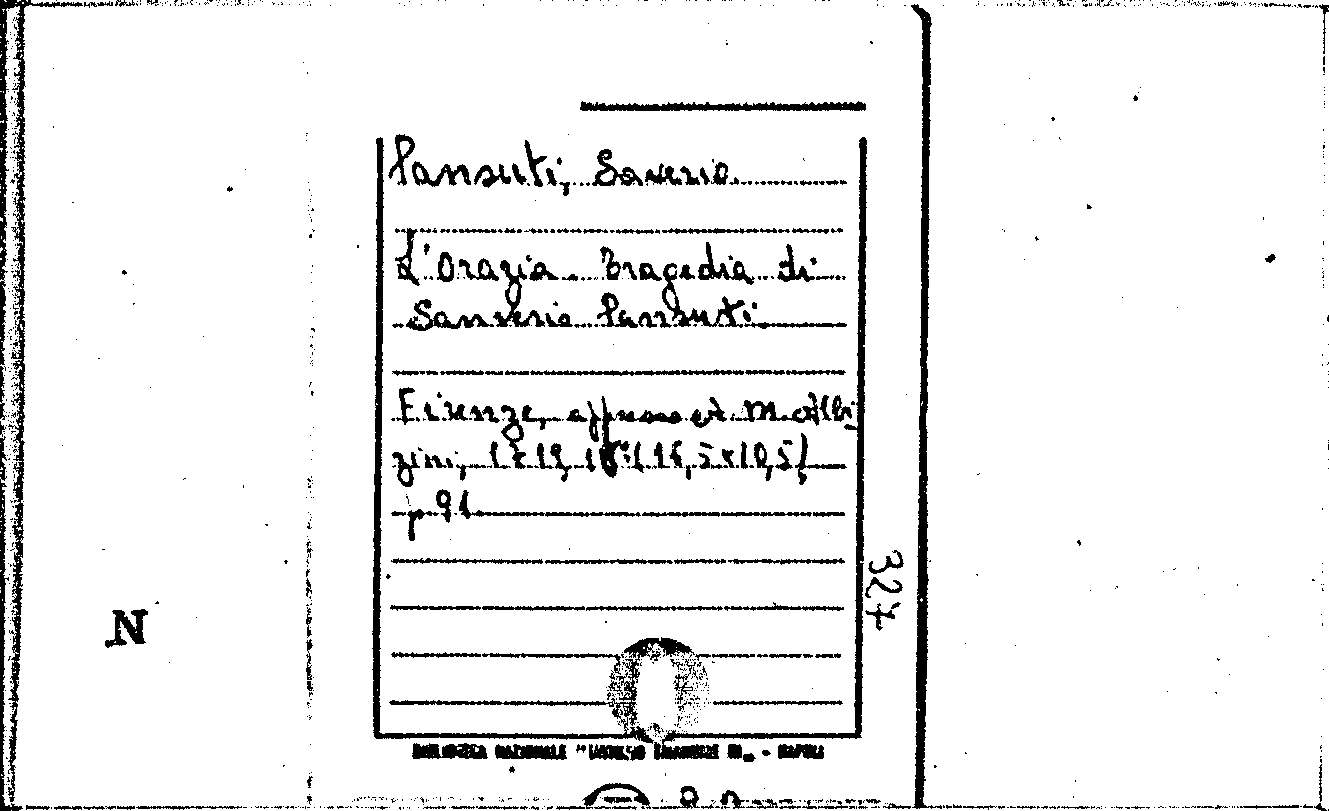 Pansuti, Saverio.
L'Orazia. Tragedia di
Sanverio Pansuti.
Firenze, appresso A. M. Albi
zini, 1719, (16,5x10,5)
p 91.
327
N
BIBLIOTECA NAZIONALE "VITTORIO EMANUELE III„ - NAPOLI